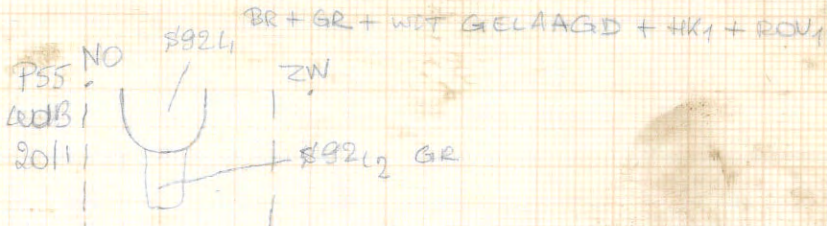 BR + GR + WIT GELAAGD + HK1 + ROV1
NO $92L1 ZW
P55
WDB
20/1
$92L2 GR